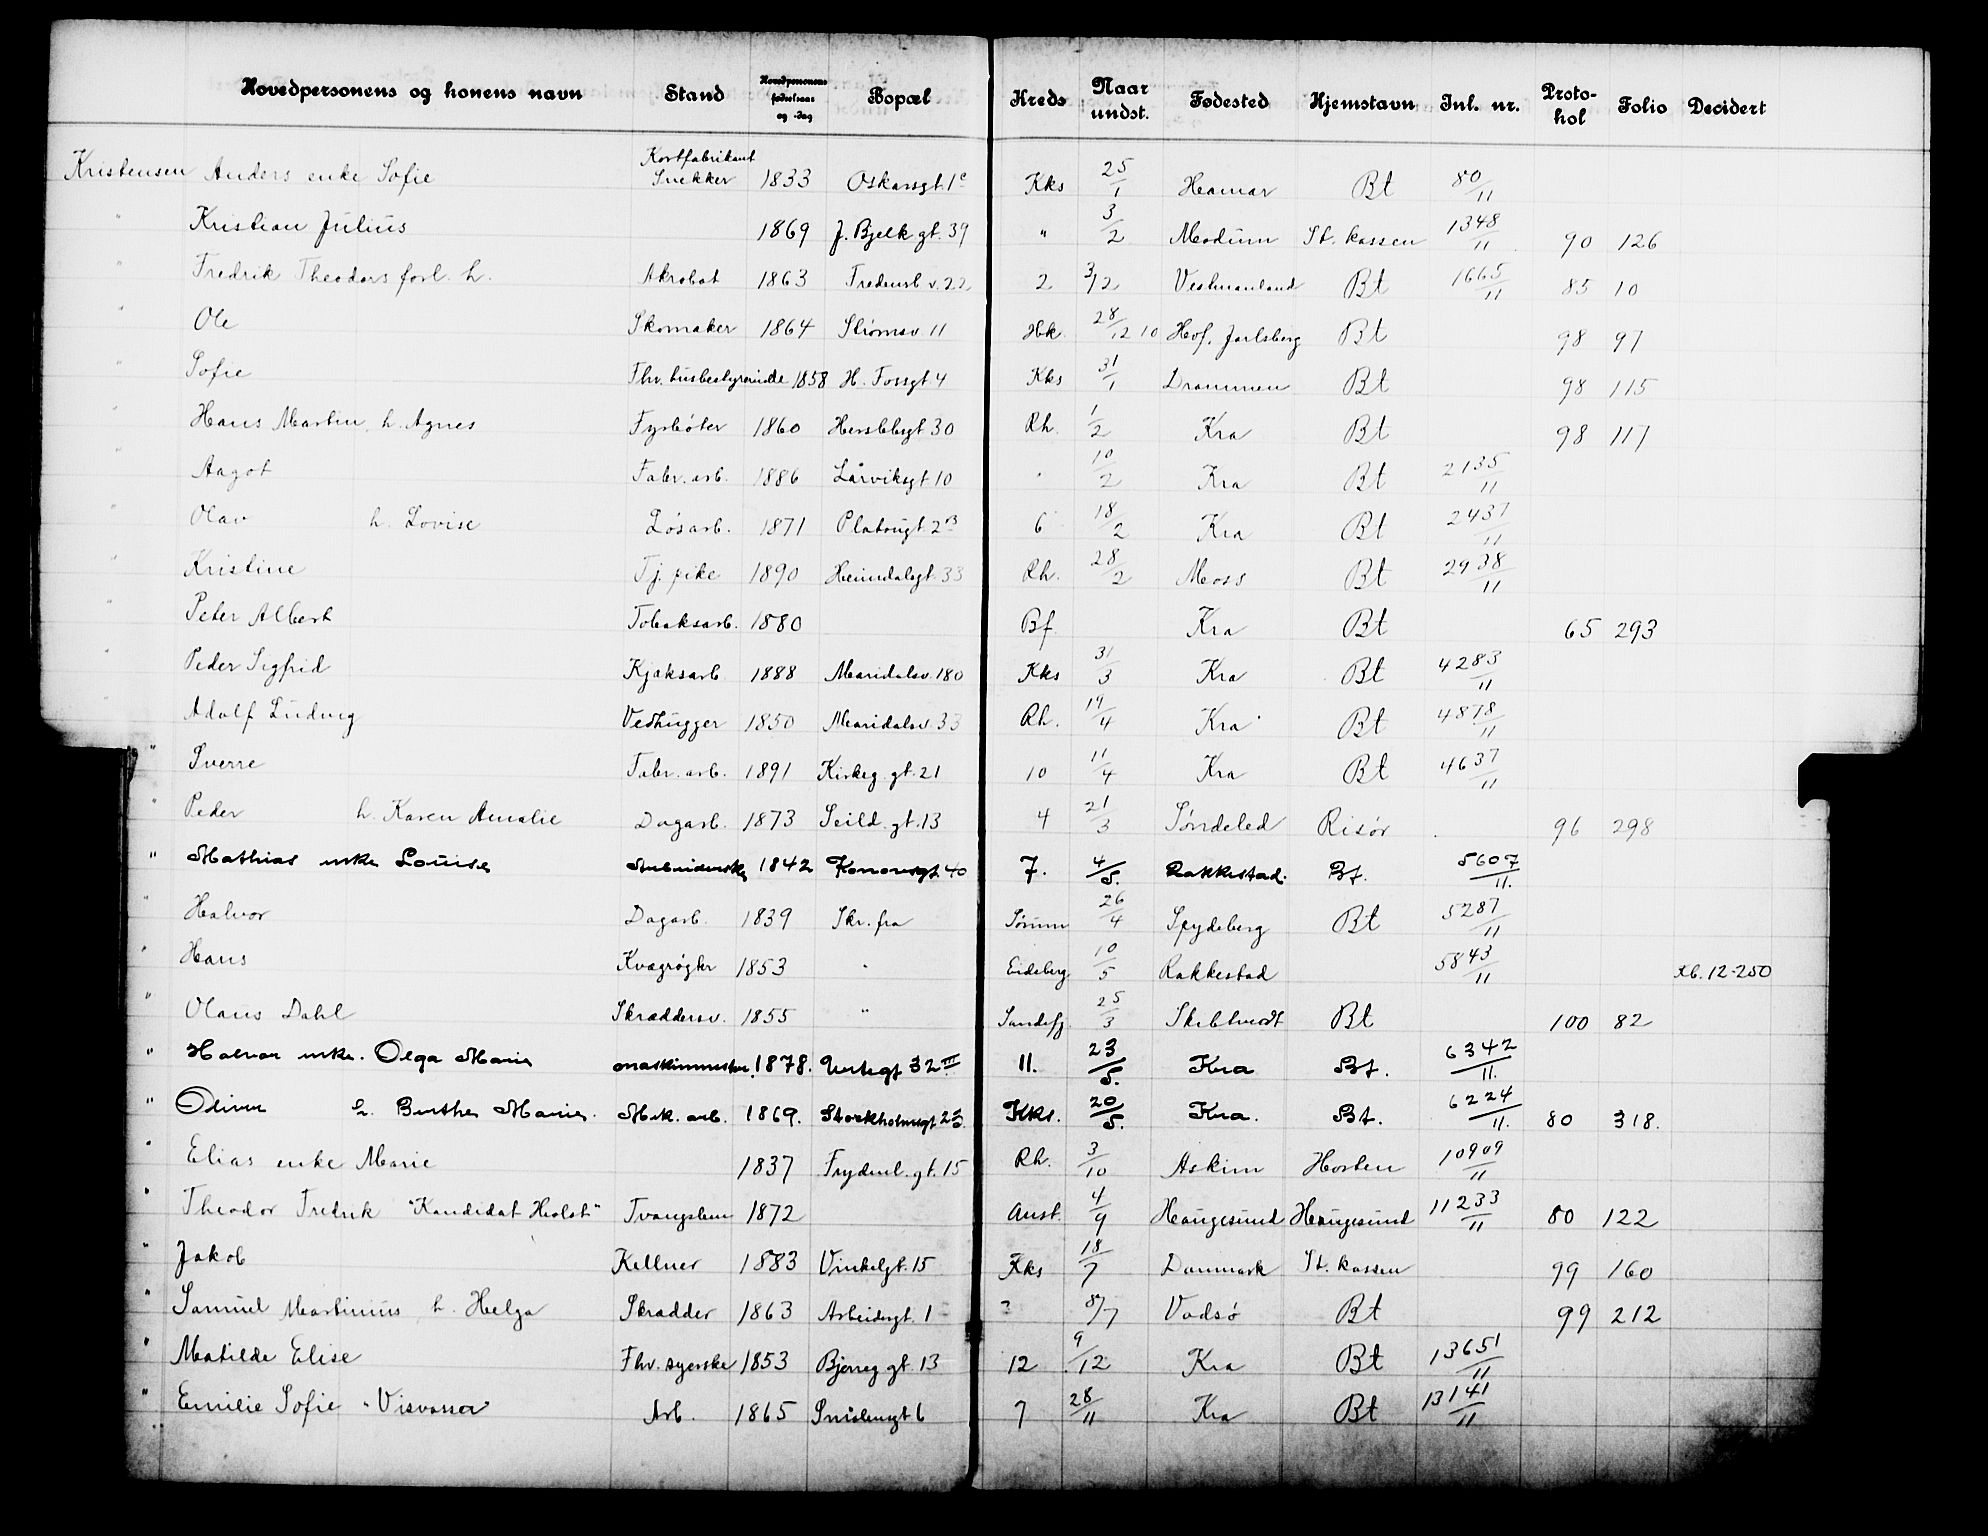 Hovedpersonens og konens navn Stand Hovedpersonens fødselsaar og -dag Bopæl Kreds Naar undst. Fødested Hjemstavn Jnl. nr. Protokol Folio Decidert
Kristensen Anders enke Sofie Kortfabrikant Snekker 1833 Oskarsgt. 1c Kks 25/1 Hamar Bt 80/11
" Kristian Julius 1869 J. Bjelk gt. 39 " 3/2 Modum St. kassen 1348/11 90 126
" Fredrik Theodors forl. h. Akrobat 1863 Fredensb v. 22 2 3/2 Vestmanland Bt 1665/11 85 10
" Ole Skomaker 1864 Strømsv 11 Hk. 28/12 10 Hof. Jarlsberg Bt 98 97
" Sofie Fhv. husbestyrerinde 1858 H. Fossgt 4 Kks 31/1 Drammen Bt 98 115
" Hans Martin h. Agnes Fyrbøter 1860 Herslebsgt 30 Rh. 1/2 Kra Bt 98 117
" Aagot Fabr. arb. 1886 Larviksgt 10 " 10/2 Kra Bt 2135/11
" Olav h. Lovise Løsarb. 1871 Platousgt 2B 6 18/2 Kra Bt 2437/11
" Kristine Tj. pike 1890 Heimdalsgt. 33 Rh. 28/2 Moss Bt 2938/11
" Peter Albert Tobaksarb. 1880 Bf Kra Bt 65 293
" Peder Sigfrid Kjøksarb 1888 Maridalsv. 180 Kks 31/3 Kra Bt 4283/11
" Adolf Ludvig Vedhugger 1850 Maridalsv. 33 Rh. 19/4 Kra Bt 4878/11
" Sverre Fabr. arb. 1891 Kirkeg. gt. 21 10 11/4 Kra Bt 4637/11
" Peder h. Karen Amalie Dagarb. 1873 Seild. gt. 13 4 21/3 Søndeled Risør 96 298
" Mathias enke Louise Arbeiderske 1842 40 7. 4/5. Rakkestad. Bt. 5607/11.
Halvor Dagarb. 1839 Skr. fra Sørum 26/4 Spydeberg Bt 5287/11
" Hans Kvægrøgter 1853 " Eidsberg 10/5 Rakkestad 5843/11 Xb. 12-250
" Olaus Dahl Skrædders v. 1855 " Sandefj. 25/3 Skibtvedt Bt 100 82
" Halvor enke. Olga Marie maskinmester. 1878. Vertsgt 32 III 11. 23/5. Kra Bt. 6342/11.
" Oliver h. Berthe Marie. Mek. arb. 1869. Stockholmsgt 25 Kks. 20/5. Kra. Bt. 6224/11. 80 318.
" Elias enke Marie 1837 Frydenl. gt. 15 Rh. 3/10 Askim Horten 10909/11
" Theodor Fredrik "Kandidat Holst" Tvangslem 1872 Anst. 4/9 Haugesund Haugesund 11233/11 80 122
" Jakob Kellner 1883 Vinkelgt. 15 Kks 18/7 Danmark St. kassen 99 160
" Samuel Martinius h. Helga Skrædder 1863 Arbeidergt. 1 2 8/7 Vadsø Bt 99 212
" Matilde Elise Fhv. syerske 1853 Bjerreg gt. 13 12 9/12 Kra Bt 13651/11
" Emilie Sofie "Visvassa" Arb. 1865 Smålensgt 6 7 28/11 Kra Bt 13141/11